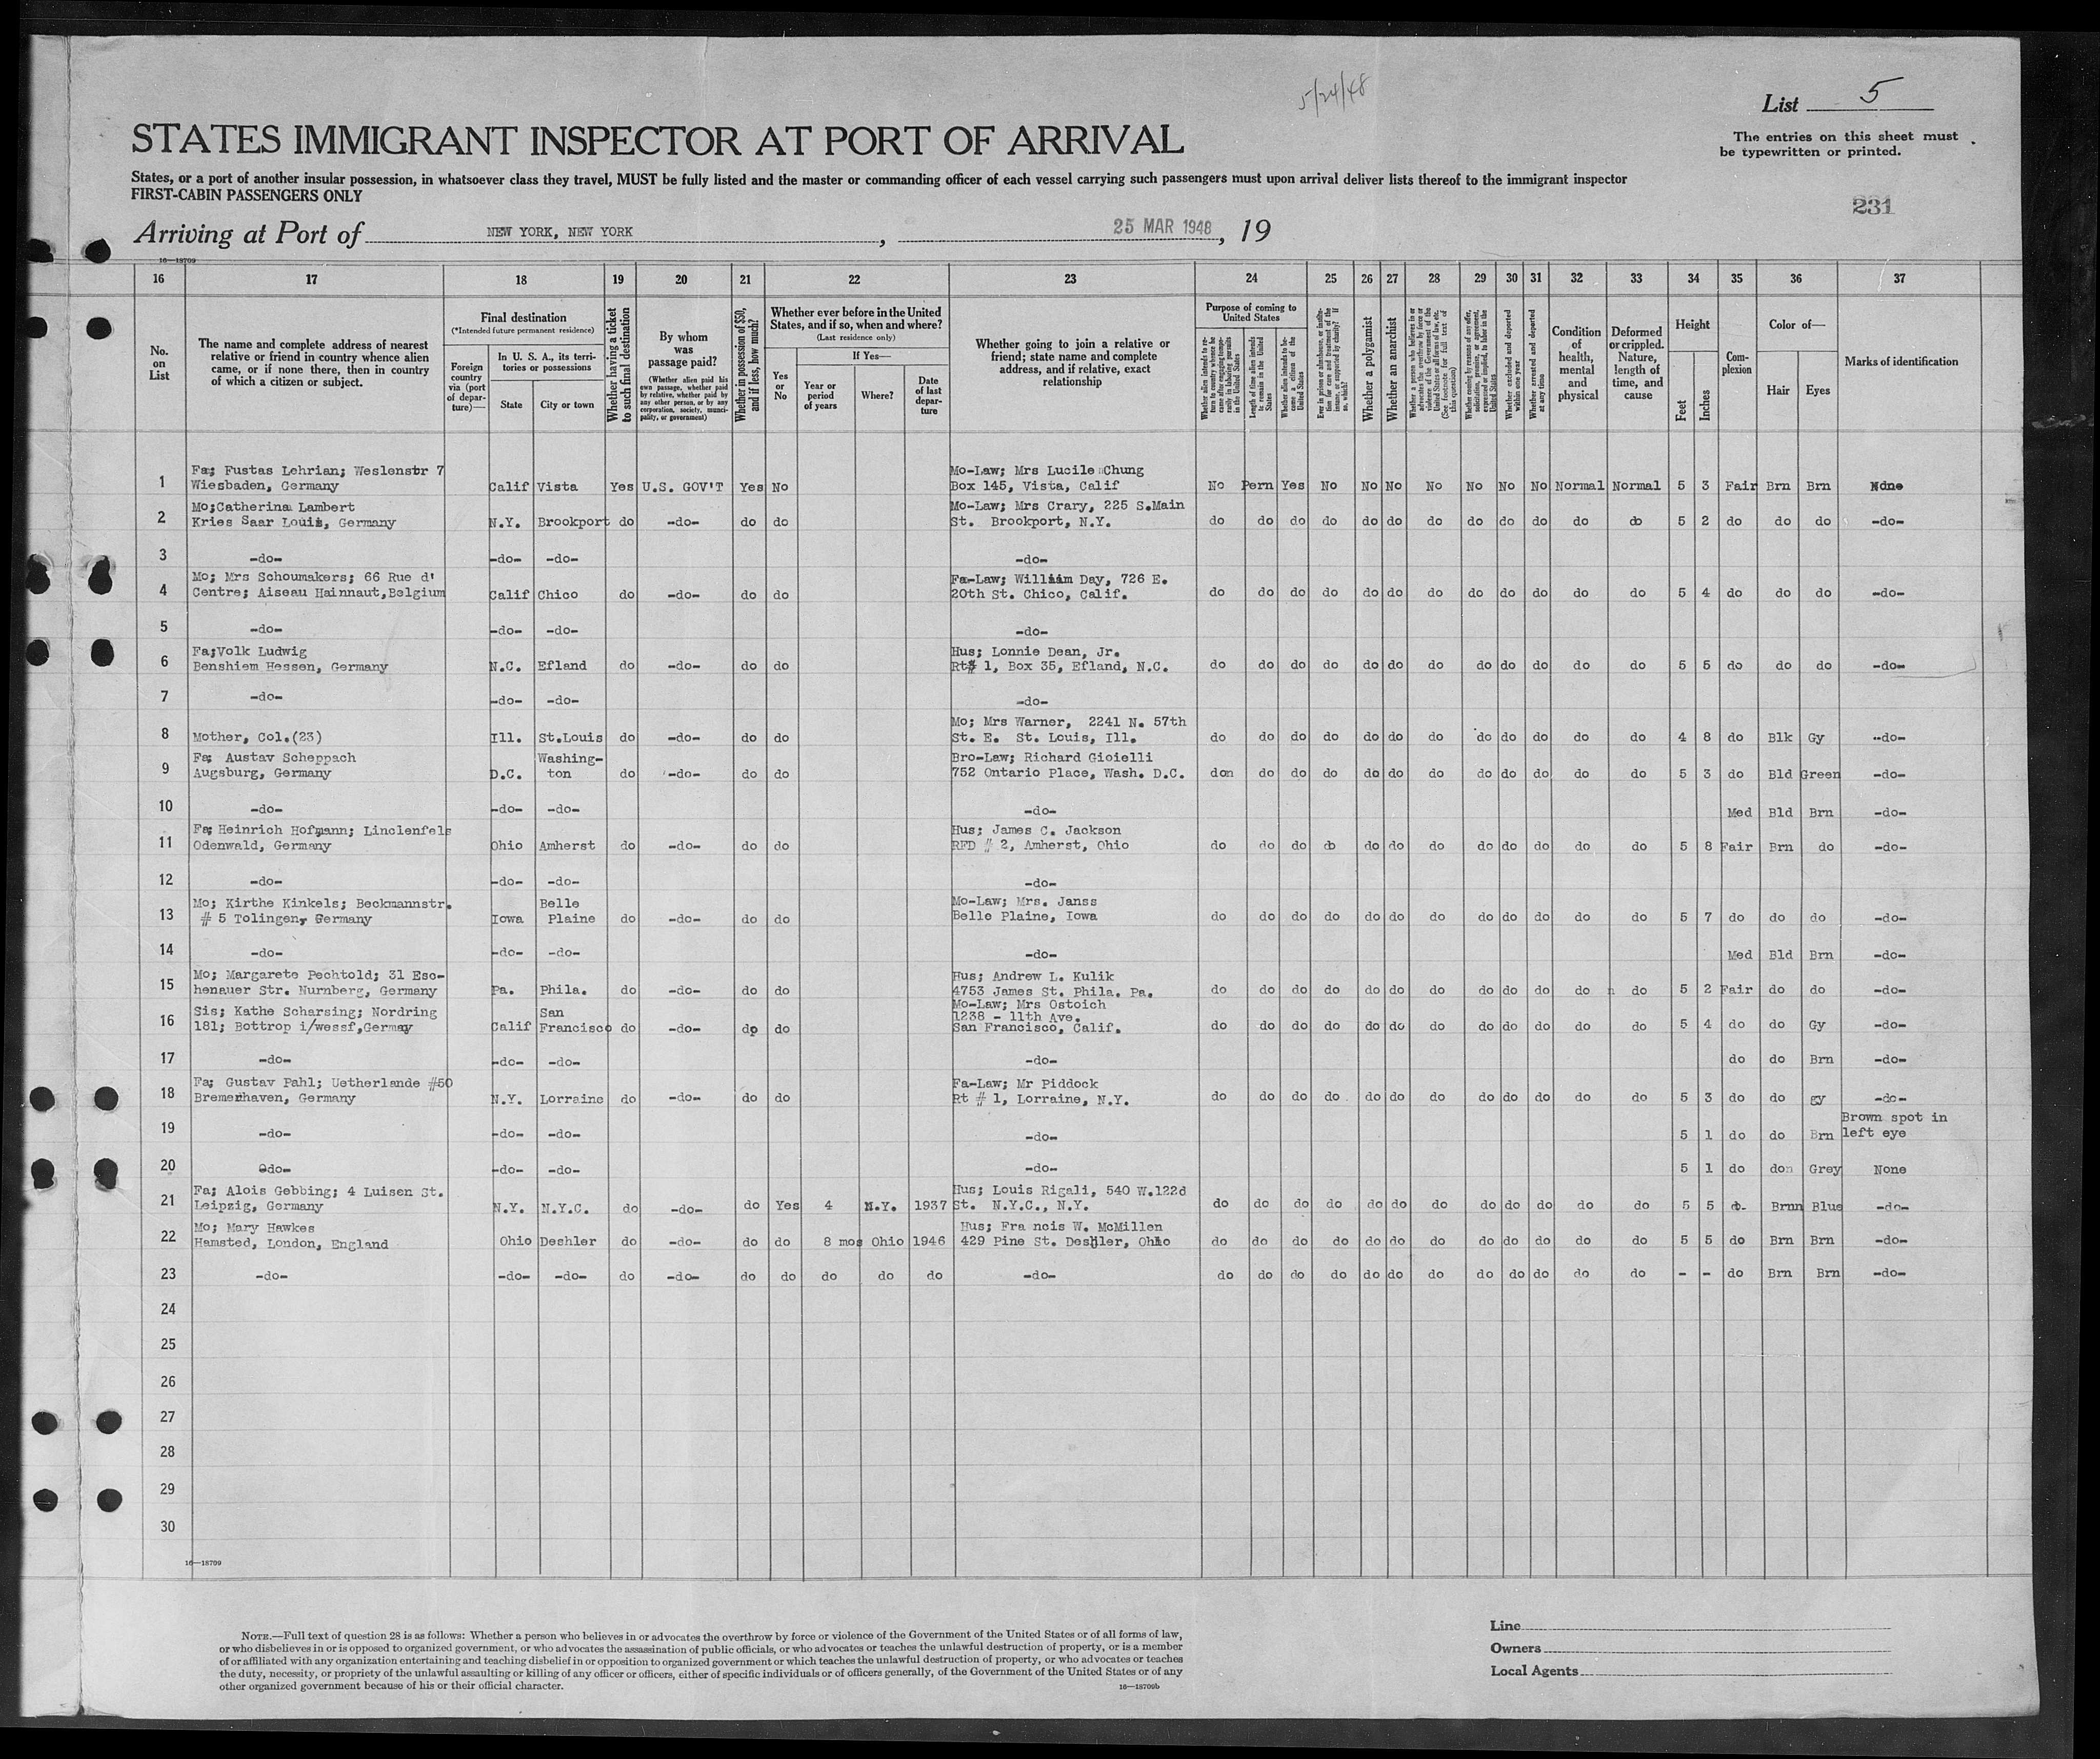 5/24/48
List 5
STATES IMMIGRANT INSPECTOR AT PORT OF ARRIVAL
The entries on this sheet must
be typewritten or printed.
States, or a port of another insular possession, in whatsoever class they travel, MUST be fully listed and the master or commanding officer of each vessel carrying such passengers must upon arrival deliver lists thereof to the immigrant inspector
FIRST-CABIN PASSENGERS ONLY
231
Arriving at Port of NEW YORK, NEW YORK, 25 MAR 1948, 19
16—18709
16 17 18 19 20 21 22 23 24 25 26 27 28 29 30 31 32 33 34 35 36 37
No. on List
The name and complete address of nearest relative or friend in country whence alien came, or if none there, then in country of which a citizen or subject.
Final destination
(*Intended future permanent residence)
Foreign country via (port of departure)—
In U. S. A., its territories or possessions
State
City or town
Whether having a ticket to such final destination
By whom was passage paid?
(Whether alien paid his own passage, whether paid by relative, whether paid by any other person, or by any corporation, society, municipality, or government)
Whether in possession of $50, and if less, how much?
Whether ever before in the United States, and if so, when and where?
(Last residence only)
If Yes—
Yes or No
Year or period of years
Where?
Date of last departure
Whether going to join a relative or friend; state name and complete address, and if relative, exact relationship
Purpose of coming to United States
Length of time alien intends to remain in the United States
Whether alien intends to become a citizen of the United States
Whether a polygamist
Whether an anarchist
Whether excluded and deported within one year
Whether arrested and deported at any time
Condition of health, mental and physical
Deformed or crippled. Nature, length of time, and cause
Height
Feet
Inches
Complexion
Color of—
Hair
Eyes
Marks of identification
1 Fa; Fustas Lehrian; Weslenstr 7 Mo-Law; Mrs Lucile Chung
Wiesbaden, Germany Calif Vista Yes U.S. GOV'T Yes No Box 145, Vista, Calif No Pern Yes No No No No No No No Normal Normal 5 3 Fair Brn Brn None
2 Mo;Catherina Lambert Mo-Law; Mrs Crary, 225 S.Main
Kries Saar Louis, Germany N.Y. Brookport do -do- do do St. Brookport, N.Y. do do do do do do do do do do do do 5 2 do do do -do-
3 -do- -do- -do- -do-
4 Mo; Mrs Schoumakers; 66 Rue d' Fa-Law; William Day, 726 E.
Centre; Aiseau Hainnaut,Belgium Calif Chico do -do- do do 20th St. Chico, Calif. do do do do do do do do do do do do 5 4 do do do -do-
5 -do- -do- -do- -do-
6 Fa;Volk Ludwig Hus; Lonnie Dean, Jr.
Benshiem Hessen, Germany N.C. Efland do -do- do do Rt# 1, Box 35, Efland, N.C. do do do do do do do do do do do do 5 5 do do do -do-
7 -do- -do- -do- -do-
Mo; Mrs Warner, 2241 N. 57th
8 Mother, Col.(23) Ill. St.Louis do -do- do do St. E. St. Louis, Ill. do do do do do do do do do do do do 4 8 do Blk Gy -do-
9 Fa; Austav Scheppach Washing- Bro-Law; Richard Gioielli
Augsburg, Germany D.C. ton do -do- do do 752 Ontario Place, Wash. D.C. don do do do do do do do do do do do 5 3 do Bld Green -do-
10 -do- -do- -do- -do- Med Bld Brn -do-
11 Fa; Heinrich Hofmann; Linclenfels Hus; James C. Jackson
Odenwald, Germany Ohio Amherst do -do- do do RFD # 2, Amherst, Ohio do do do do do do do do do do do do 5 8 Fair Brn do -do-
12 -do- -do- -do- -do-
13 Mo; Kirthe Kinkels; Beckmannstr. Belle Mo-Law; Mrs. Janss
# 5 Tolingen, Germany Iowa Plaine do -do- do do Belle Plaine, Iowa do do do do do do do do do do do do 5 7 do do do -do-
14 -do- -do- -do- -do- Med Bld Brn -do-
15 Mo; Margarete Pechtold; 31 Esc- Hus; Andrew L. Kulik
henauer Str. Nurnberg, Germany Pa. Phila. do -do- do do 4753 James St. Phila. Pa. do do do do do do do do do do do do 5 2 Fair do do -do-
16 Sis; Kathe Scharsing; Nordring San Mo-Law; Mrs Ostoich
1238 - 11th Ave.
181; Bottrop i/wessf,Germay Calif Francisco do -do- do do San Francisco, Calif. do do do do do do do do do do do do 5 4 do do Gy -do-
17 -do- -do- -do- -do- do do Brn -do-
18 Fa; Gustav Pahl; Uetherlande #50 Fa-Law; Mr Piddock
Bremerhaven, Germany N.Y. Lorraine do -do- do do Rt # 1, Lorraine, N.Y. do do do do do do do do do do do do 5 3 do do gy -do-
19 -do- -do- -do- -do- 5 1 do do Brn Brown spot in
left eye
20 -do- -do- -do- -do- 5 1 do don Grey None
21 Fa; Alois Gebbing; 4 Luisen St. Hus; Louis Rigali, 540 W.122d
Leipzig, Germany N.Y. N.Y.C. do -do- do Yes 4 N.Y. 1937 St. N.Y.C., N.Y. do do do do do do do do do do do do 5 5 do Brnn Blue -do-
22 Mo; Mary Hawkes Hus; Fra ncis W. McMillen
Hamsted, London, England Ohio Deshler do -do- do do 8 mos Ohio 1946 429 Pine St. Deshler, Ohio do do do do do do do do do do do do 5 5 do Brn Brn -do-
23 -do- -do- -do- do -do- do do do do do -do- do do do do do do do do do do do do - - do Brn Brn -do-
24
25
26
27
28
29
30
16—18709
NOTE.—Full text of question 28 is as follows: Whether a person who believes in or advocates the overthrow by force or violence of the Government of the United States or of all forms of law,
or who disbelieves in or is opposed to organized government, or who advocates the assassination of public officials, or who advocates or teaches the unlawful destruction of property, or is a member
of or affiliated with any organization entertaining and teaching disbelief in or opposition to organized government or which teaches the unlawful destruction of property, or who advocates or teaches
the duty, necessity, or propriety of the unlawful assaulting or killing of any officer or officers, either of specific individuals or of officers generally, of the Government of the United States or of any
other organized government because of his or their official character.
16—18709b
Line
Owners
Local Agents